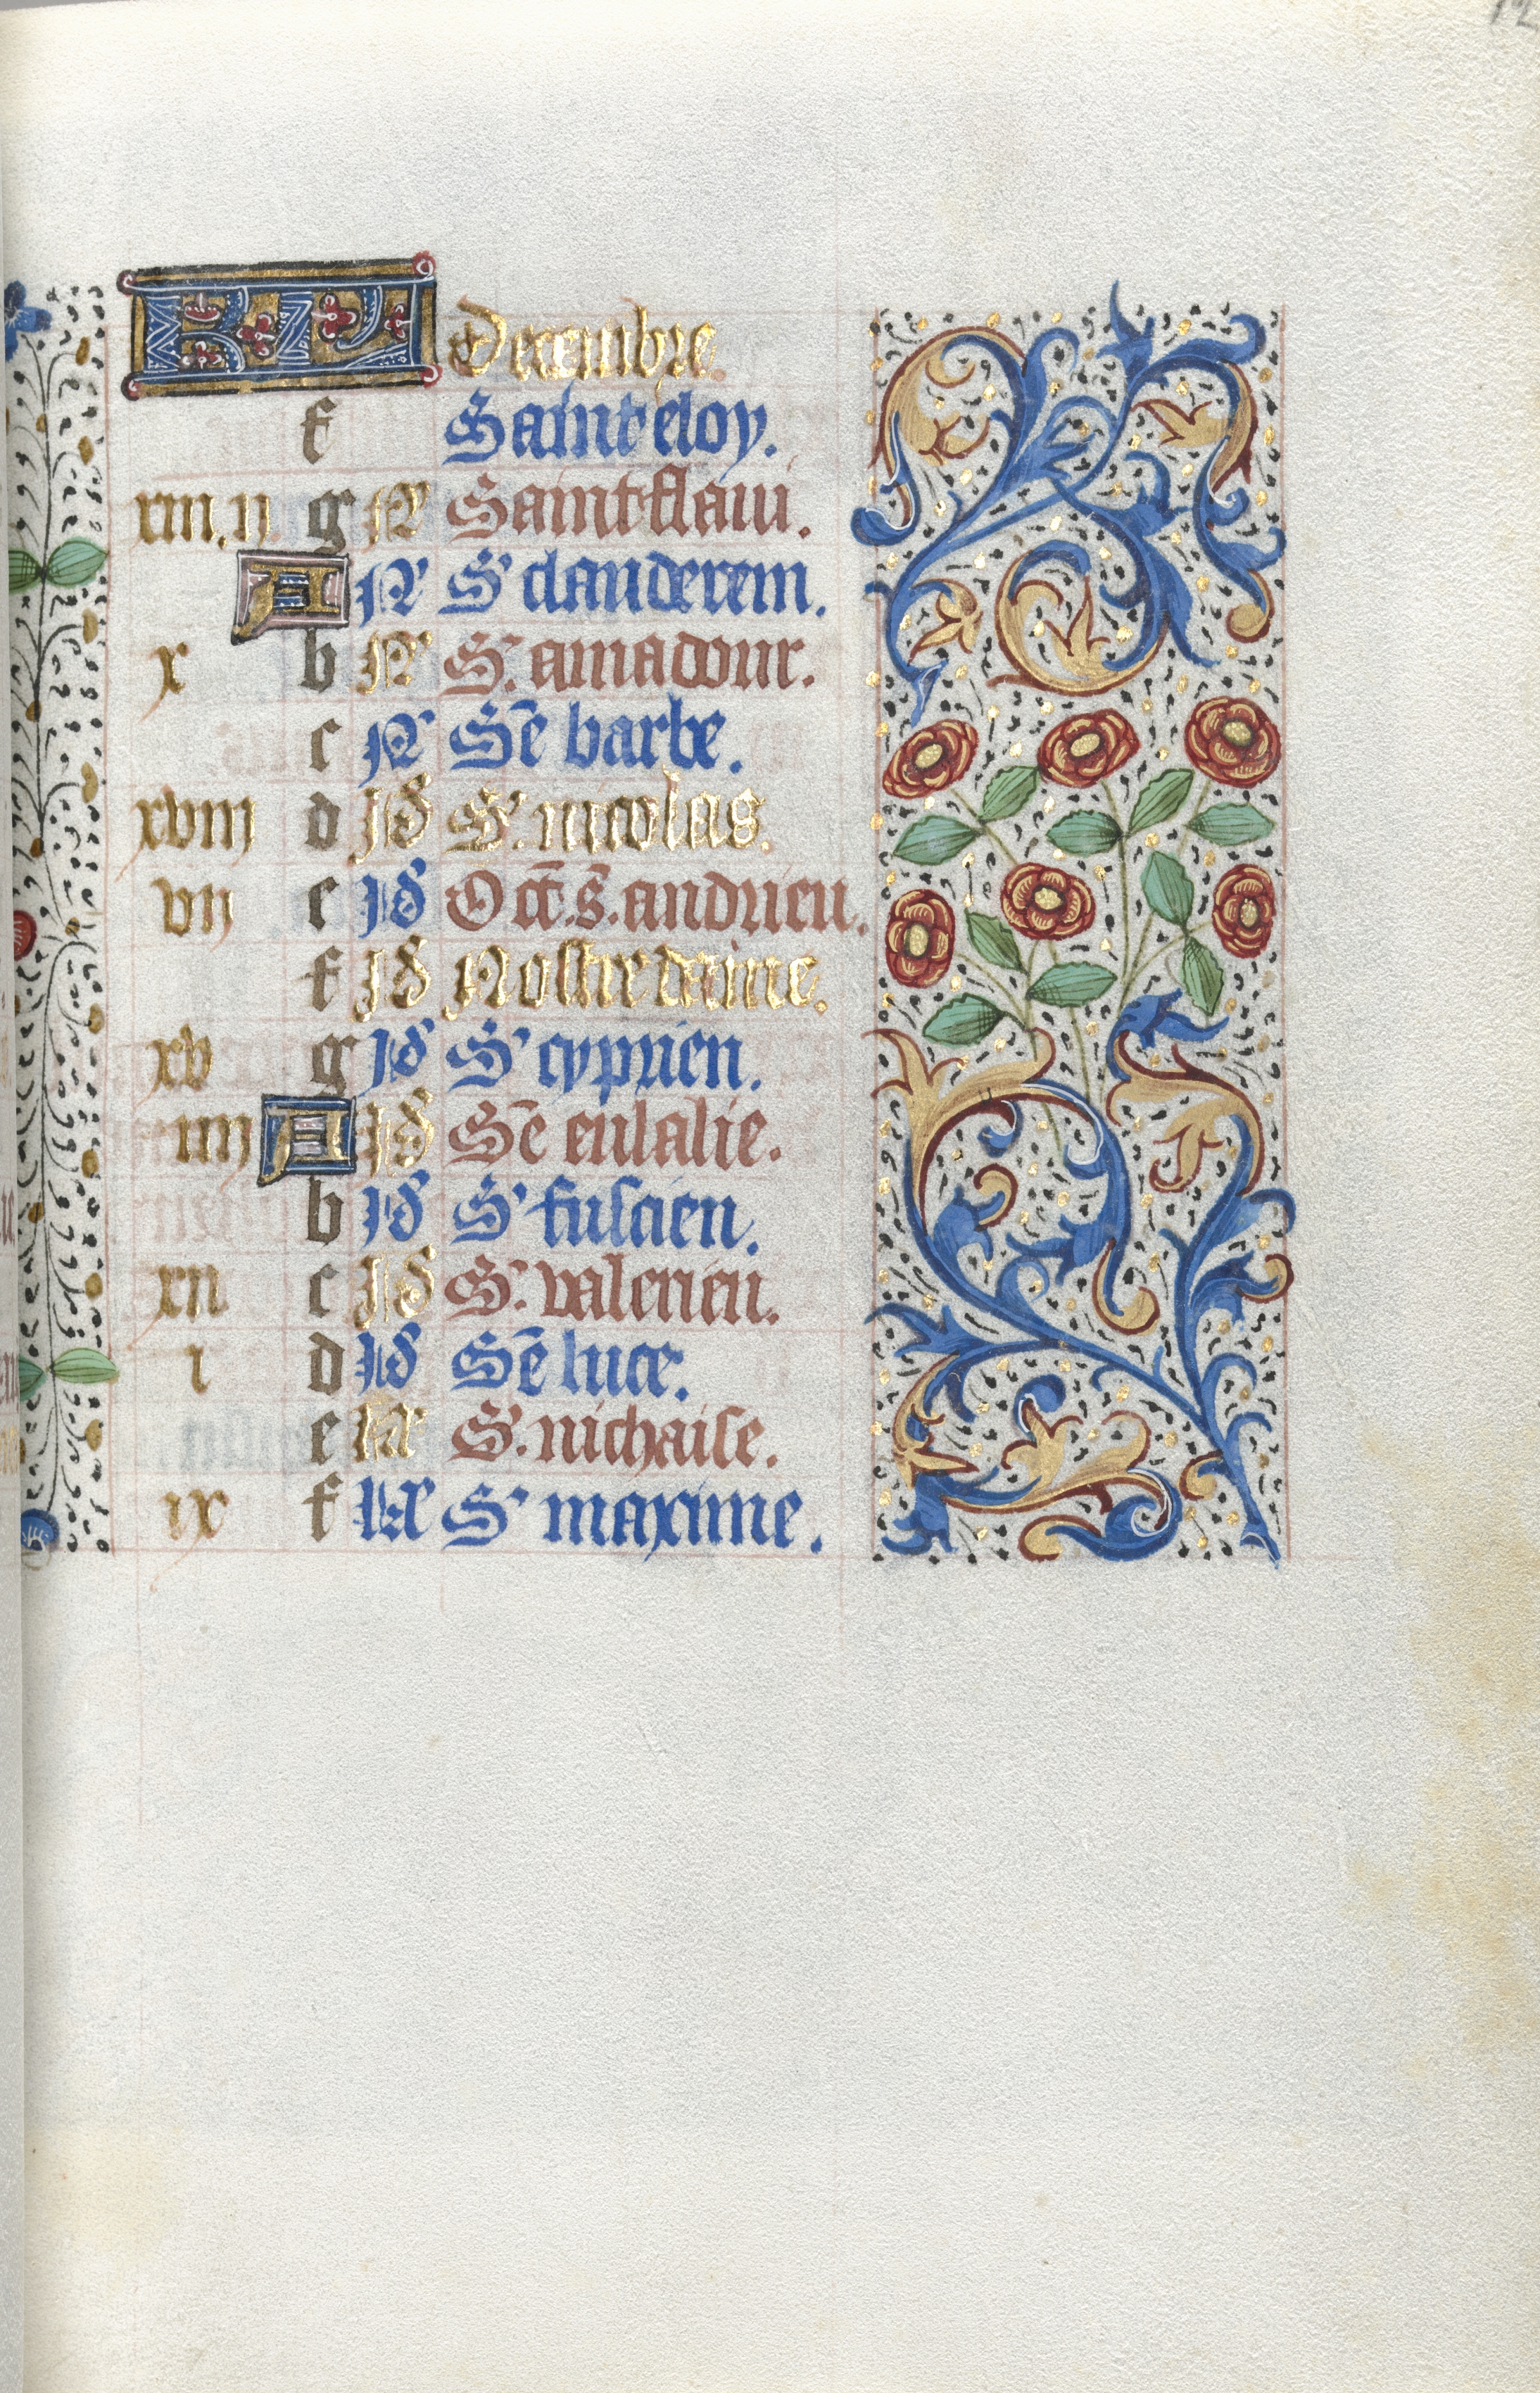 12
KL Decembre.
f Saint eloy.
xiii.ii. g N Saint flaui.
A N S' clanderem.
x b N S. amadour.
c N Sē barbe.
xviii d id S'. nicolas.
vii e id Oct. s. andrieu.
f id Nostre dame.
xv g id S' cyprien.
iiii A id Sē eulalie.
b id S' fuscien.
xii c id S'. valerien.
i d id Sē luce.
e kl S'. nichaise.
ix f kl S' maxime.